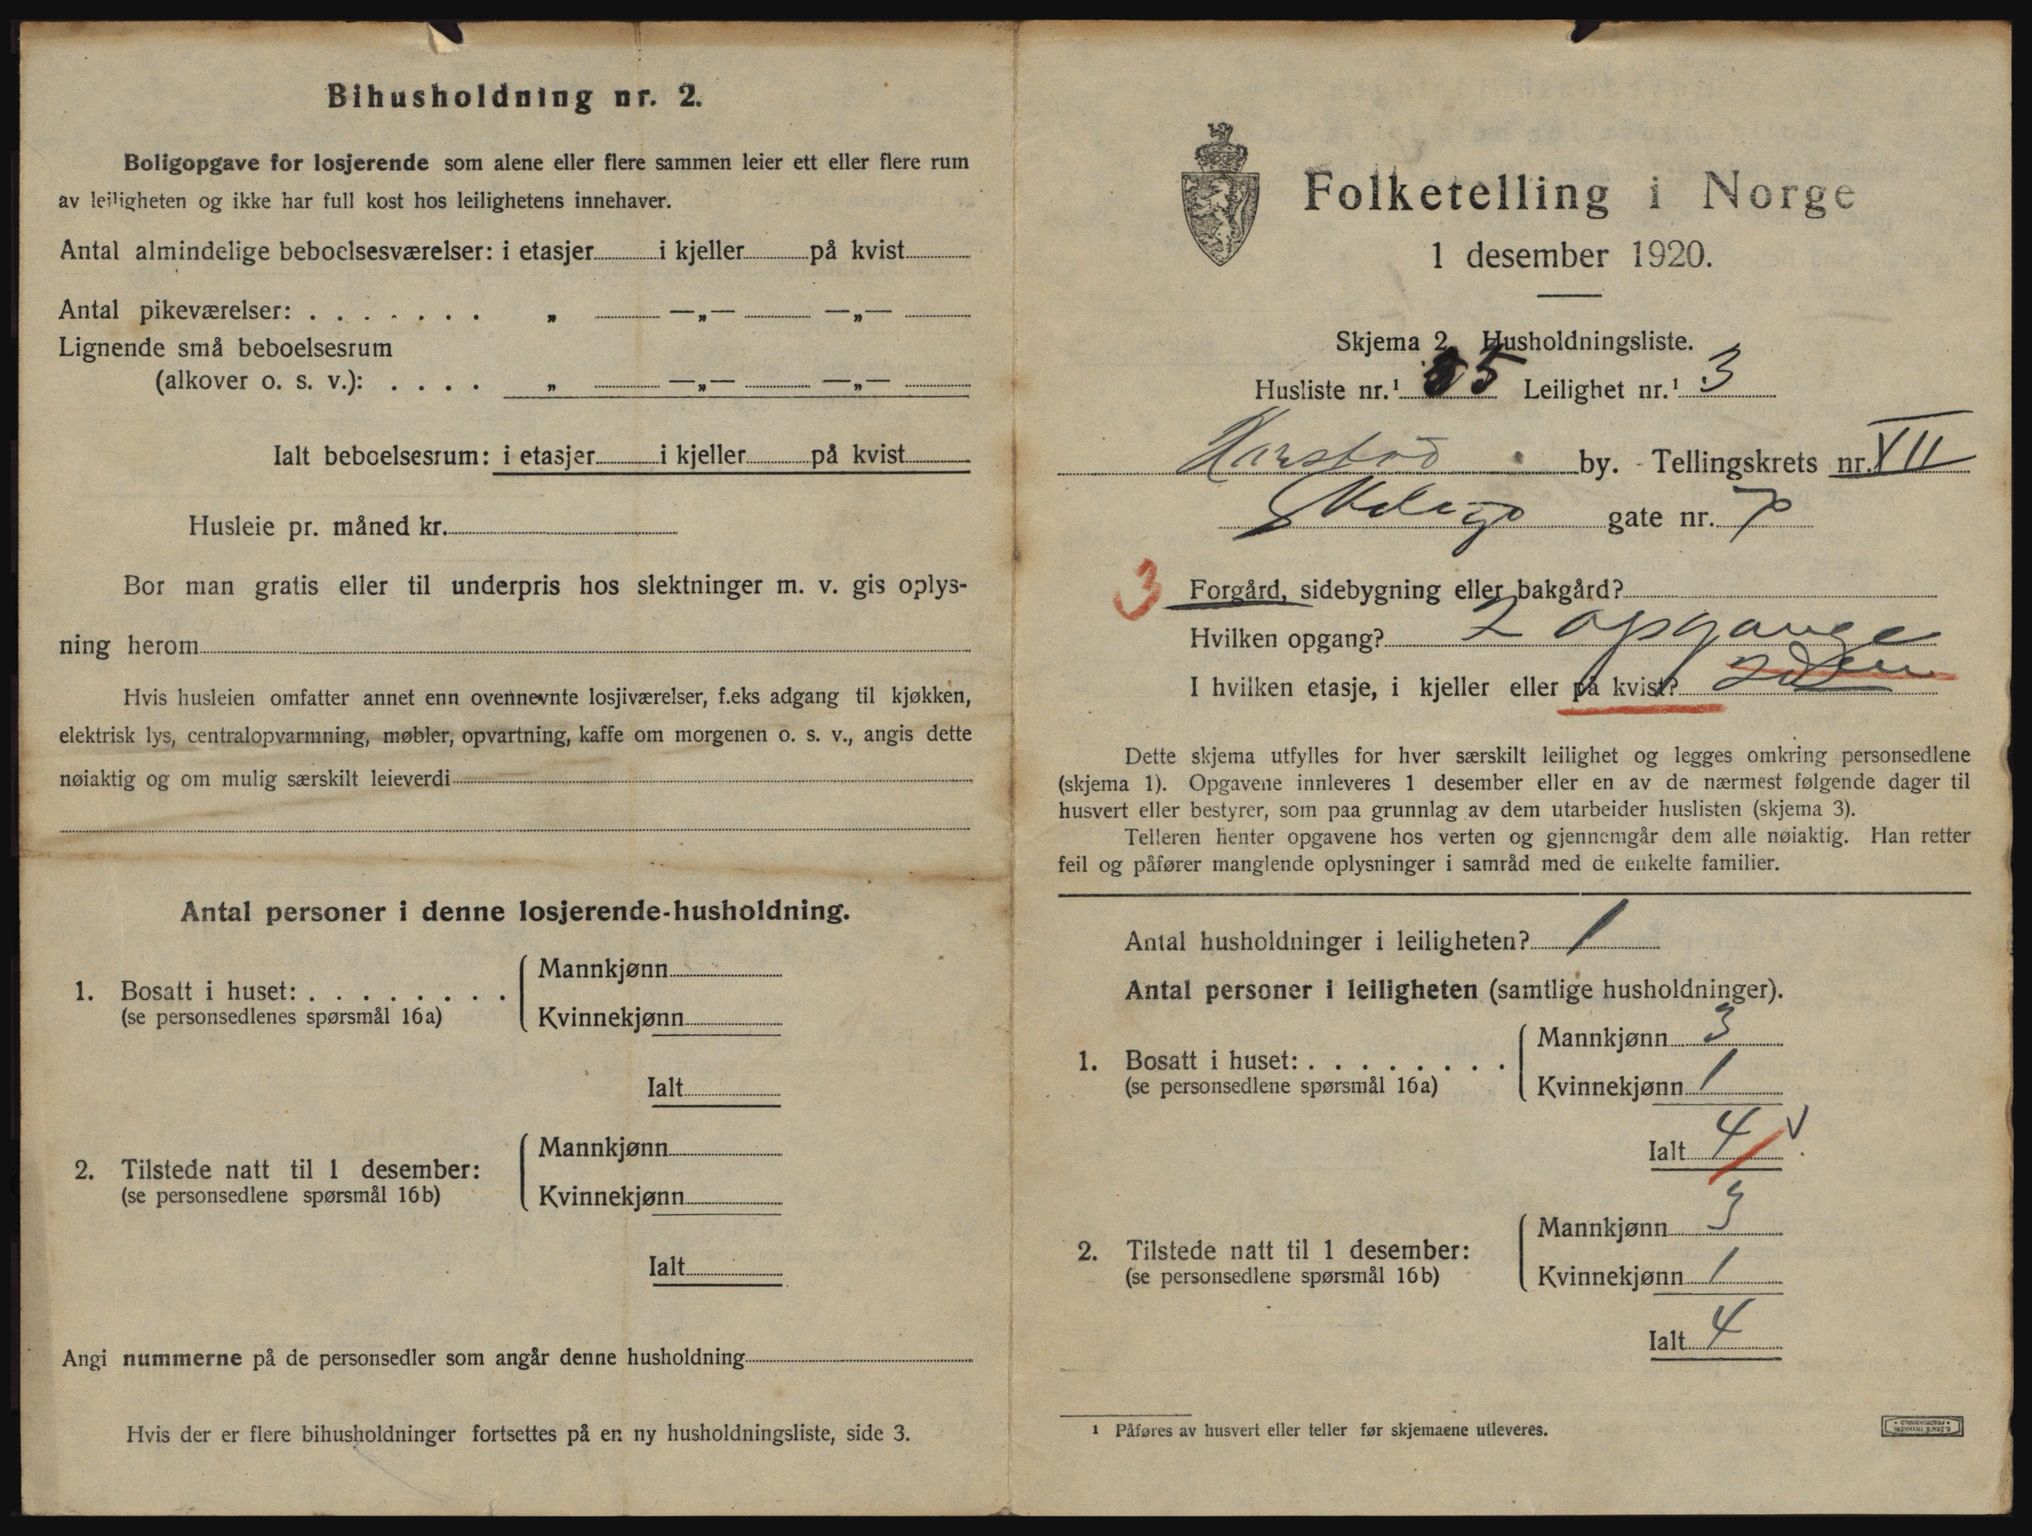 Bihusholdning nr. 2.
Boligopgave for losjerende som alene eller flere sammen leier ett eller flere rum
av leiligheten og ikke har full kost hos leilighetens innehaver.
Antal almindelige beboelsesværelser: i etasjer i kjeller på kvist
Antal pikeværelser: . . . . . . . „ —„— —„—
Lignende små beboelsesrum
(alkover o. s. v.): . . . . „ —„— —„—
Ialt beboelsesrum: i etasjer i kjeller på kvist
Husleie pr. måned kr.
Bor man gratis eller til underpris hos slektninger m. v. gis oplys-
ning herom
Hvis husleien omfatter annet enn ovennevnte losjiværelser, f.eks adgang til kjøkken,
elektrisk lys, centralopvarmning, møbler, opvartning, kaffe om morgenen o. s. v., angis dette
nøiaktig og om mulig særskilt leieverdi
Antal personer i denne losjerende-husholdning.
1. Bosatt i huset: . . . . . . . .
(se personsedlenes spørsmål 16a)
Mannkjønn
Kvinnekjønn
Ialt
2. Tilstede natt til 1 desember:
(se personsedlene spørsmål 16b)
Mannkjønn
Kvinnekjønn
Ialt
Angi nummerne på de personsedler som angår denne husholdning
Hvis der er flere bihusholdninger fortsettes på en ny husholdningsliste, side 3.
Folketelling i Norge
1 desember 1920.
Skjema 2. Husholdningsliste.
Husliste nr.¹ 35 Leilighet nr.¹ 3
Harstad by. - Tellingskrets nr. VII
gate nr. 7
3 Forgård, sidebygning eller bakgård?
Hvilken opgang? 2 opgange
I hvilken etasje, i kjeller eller på kvist?
Dette skjema utfylles for hver særskilt leilighet og legges omkring personsedlene
(skjema 1). Opgavene innleveres 1 desember eller en av de nærmest følgende dager til
husvert eller bestyrer, som paa grunnlag av dem utarbeider huslisten (skjema 3).
Telleren henter opgavene hos verten og gjennemgår dem alle nøiaktig. Han retter
feil og påfører manglende oplysninger i samråd med de enkelte familier.
Antal husholdninger i leiligheten? 1
Antal personer i leiligheten (samtlige husholdninger).
1. Bosatt i huset: . . . . . . . .
(se personsedlene spørsmål 16a)
Mannkjønn 3
Kvinnekjønn 1
Ialt 4 V
2. Tilstede natt til 1 desember:
(se personsedlene spørsmål 16b)
Mannkjønn 3
Kvinnekjønn 1
Ialt 4
¹ Påføres av husvert eller teller før skjemaene utleveres.